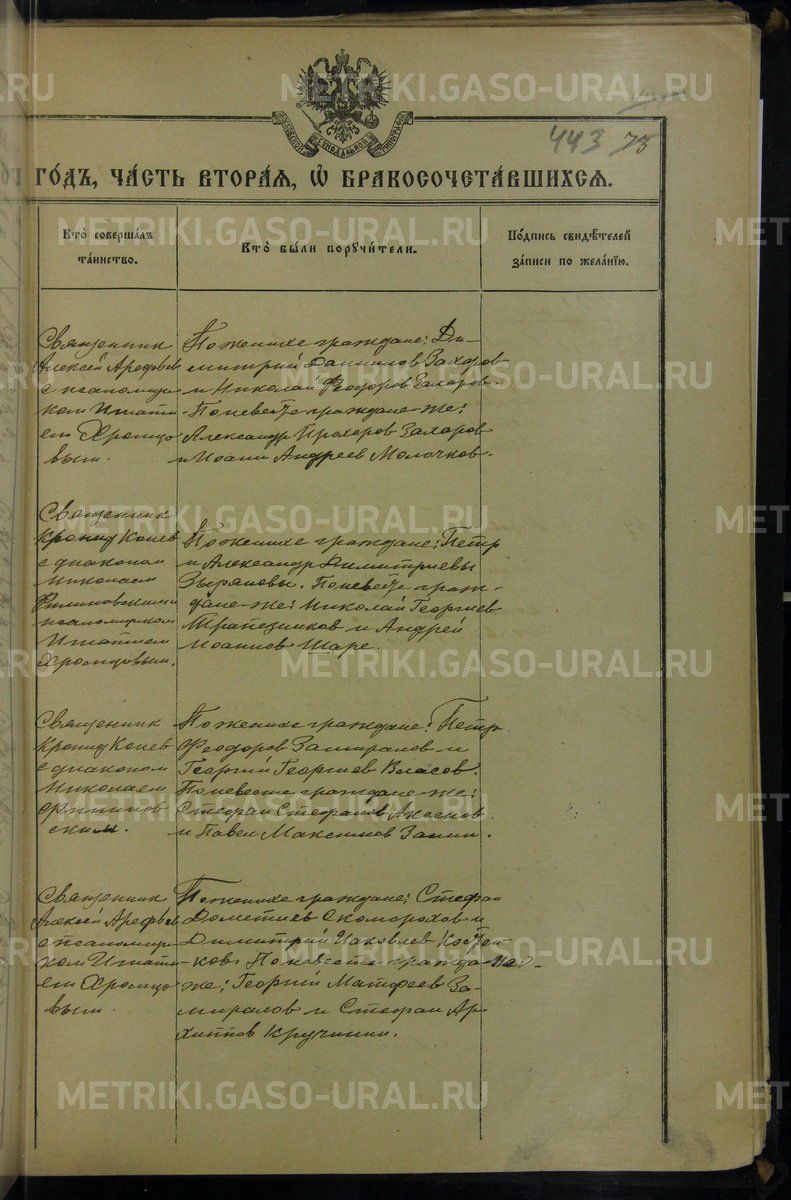 METRIKI.GASO-URAL.RU
МОСКОВСКОЙ СѴНОДАЛЬНОЙ ТИПОГРАФІИ
443 73
ГО́ДЪ, ЧА́СТЬ ВТОРА́Ѧ, Ѡ БРАКОСОЧЕТА́ВШИХСѦ.
Кто̀ соверша́лъ
та́инство.
Кто̀ бы́ли порꙋчи́тели.
По́дпись свидѣ́телей
за́писи по жела́нїю.
Священник
Алексей Арефьев
с псаломщи
ком Игнати
ем Хромцо
вым.
По женихе граждане: Ди-
митрий Даниилов Захаров
и Николай Феодоров Захаров.
По невесте граждане-же:
Александр Прохоров Захаров
и Иоанн Андреев Молочков.
Священник
Кронид Конев
с диаконом
Николаем
Филиповским и
псаломщиком
Игнатием
Хромцовым.
По женихе граждане: Петр
и Александр Димитриевы
Зыряновы. По невесте граж-
дане-же: Николай Георгиев
Трапезников и Андрей
Иоаннов Шаре.
Священник
Кронид Конев
с диаконом
Николаем
Филипов
ским.
По женихе граждане: Петр
Феодоров Замиралов и
Георгий Георгиев Власов.
По невесте граждане-же:
Стефан Стефанов Аксенов
и Павел Максимов Занин.
Священник
Алексей Арефьев
с псаломщи
ком Игнати
ем Хромцо
вым.
По женихе граждане: Стефан
Дометиев Скоморохов и
Димитрий Иаковлев
ков. По невесте граждане-
же: Георгий Матфеев За-
миралов и Стефан Ар
хиппов Кручинин.